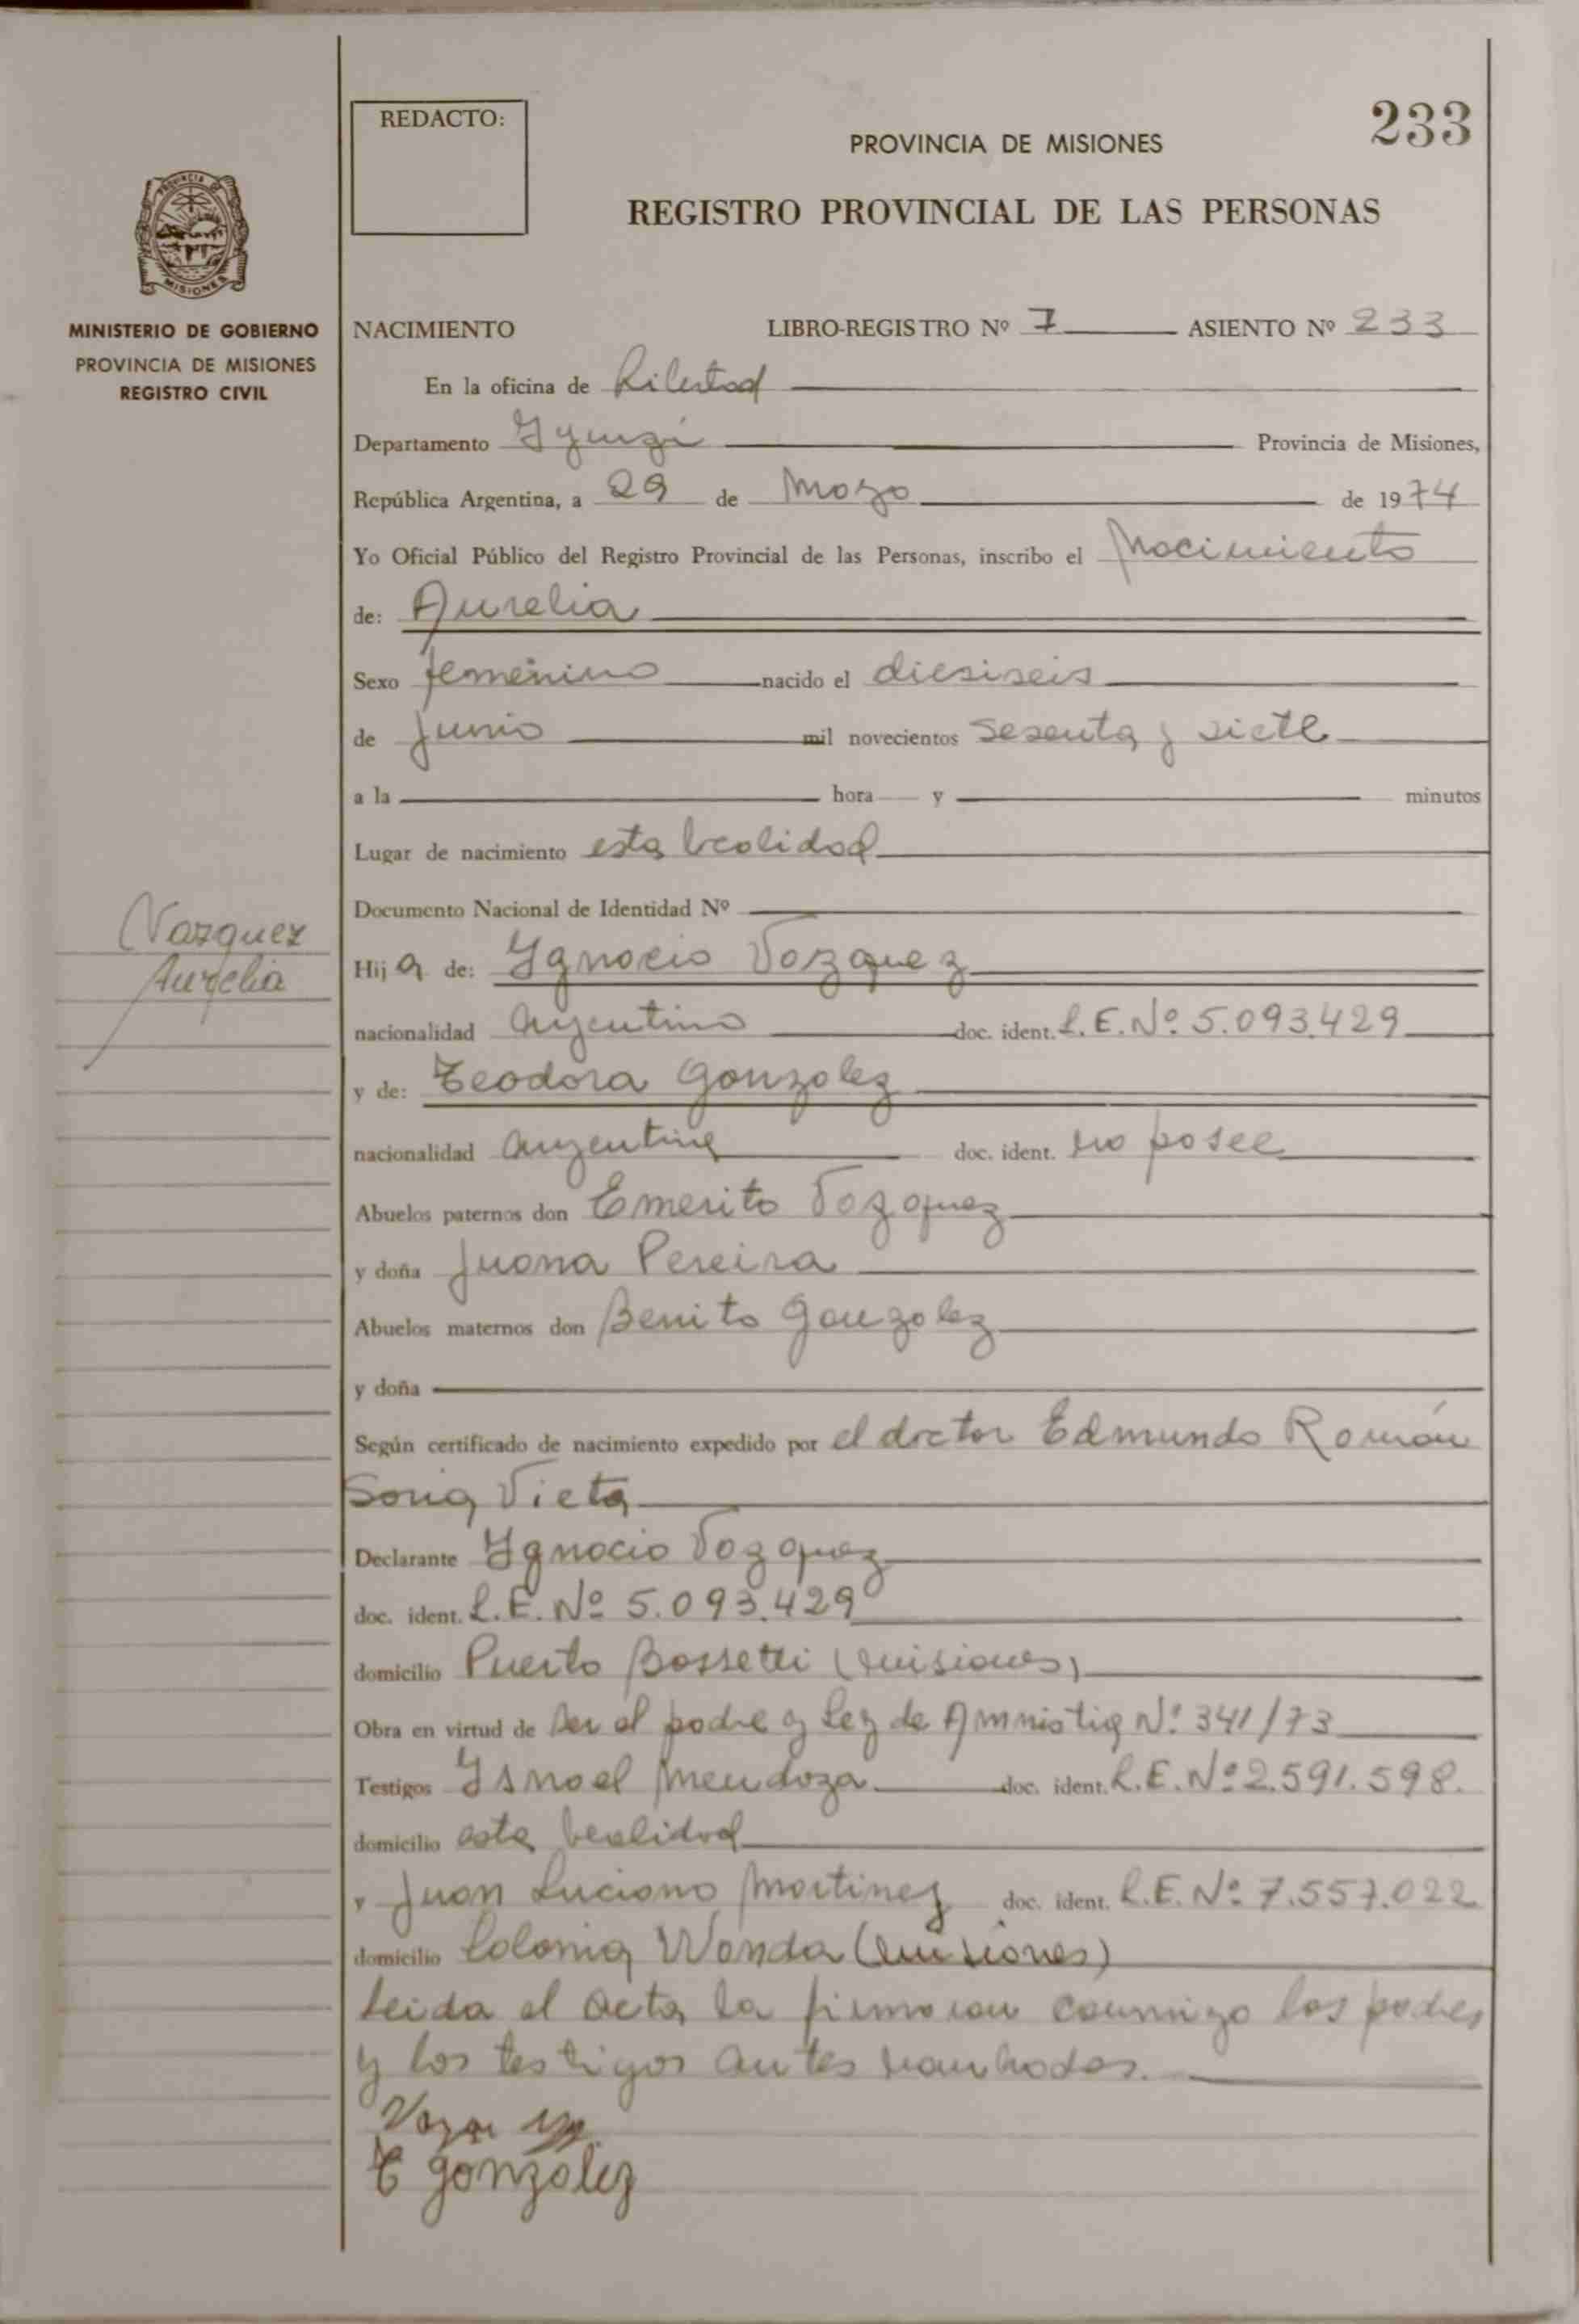 REDACTO:
233
PROVINCIA DE MISIONES
REGISTRO PROVINCIAL DE LAS PERSONAS
PROVINCIA DE
MISIONES
MINISTERIO DE GOBIERNO
PROVINCIA DE MISIONES
REGISTRO CIVIL
NACIMIENTO LIBRO-REGISTRO Nº 7 ASIENTO Nº 233
En la oficina de Libertad
Departamento Yguazú Provincia de Misiones,
República Argentina, a 29 de Mayo de 1974
Yo Oficial Público del Registro Provincial de las Personas, inscribo el Nacimiento
de: Aurelia
Sexo femenino nacido el diesiseis
de Junio mil novecientos sesenta y siete
a la hora y minutos
Lugar de nacimiento esta localidad
Documento Nacional de Identidad Nº
Vazquez
Aurelia
Hija de: Ygnacio Vazquez
nacionalidad Argentino doc. ident. L.E. Nº 5.093.429
y de: Teodora Gonzalez
nacionalidad argentina doc. ident. no posee
Abuelos paternos don Emerito Vazquez
y doña Juana Pereira
Abuelos maternos don Benito Gonzalez
y doña
Según certificado de nacimiento expedido por el doctor Edmundo Román
Soria Vieta
Declarante Ygnacio Vazquez
doc. ident. L.E. Nº 5.093.429
domicilio Puerto Bossetti (Misiones)
Obra en virtud de ser el padre y Ley de Amnistia Nº 341/73
Testigos Ismael Mendoza doc. ident. L.E. Nº 2.591.598.
domicilio esta localidad
y Juan Luciano Martinez doc. ident. L.E. Nº 7.557.022
domicilio Colonia Wanda (Misiones)
Leida el acta, la firmaron conmigo los padres
y los testigos antes nombrados.
T Gonzalez